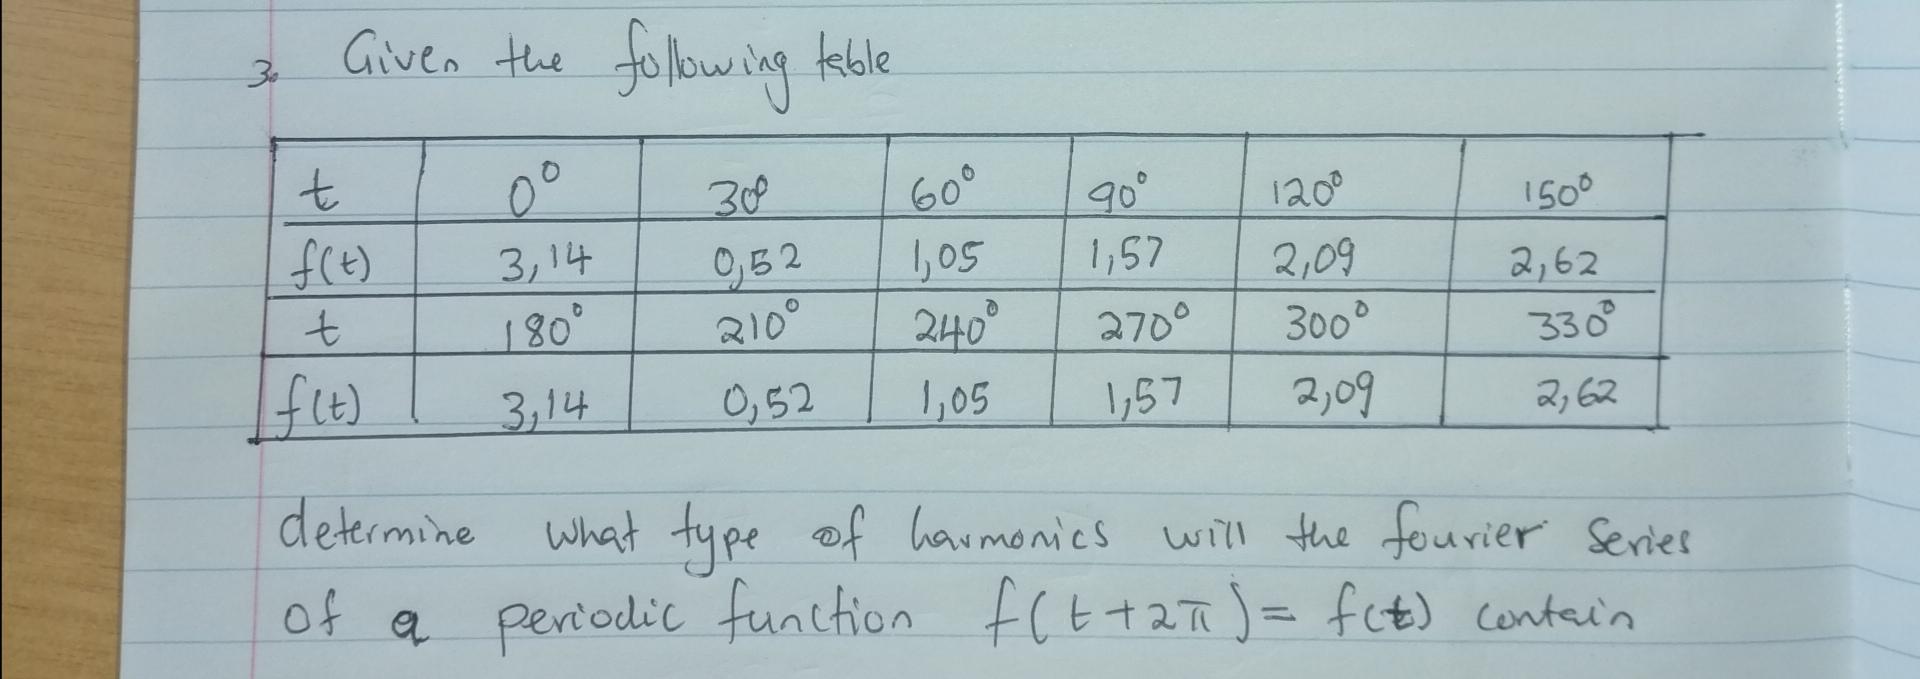 3. Given the following table
t 0° 30° 60° 90° 120° 150°
f(t) 3,14 0,52 1,05 1,57 2,09 2,62
t 180° 210° 240° 270° 300° 330°
f(t) 3,14 0,52 1,05 1,57 2,09 2,62
determine what type of harmonics will the fourier series
of a periodic function f(t+2π)= f(t) contain